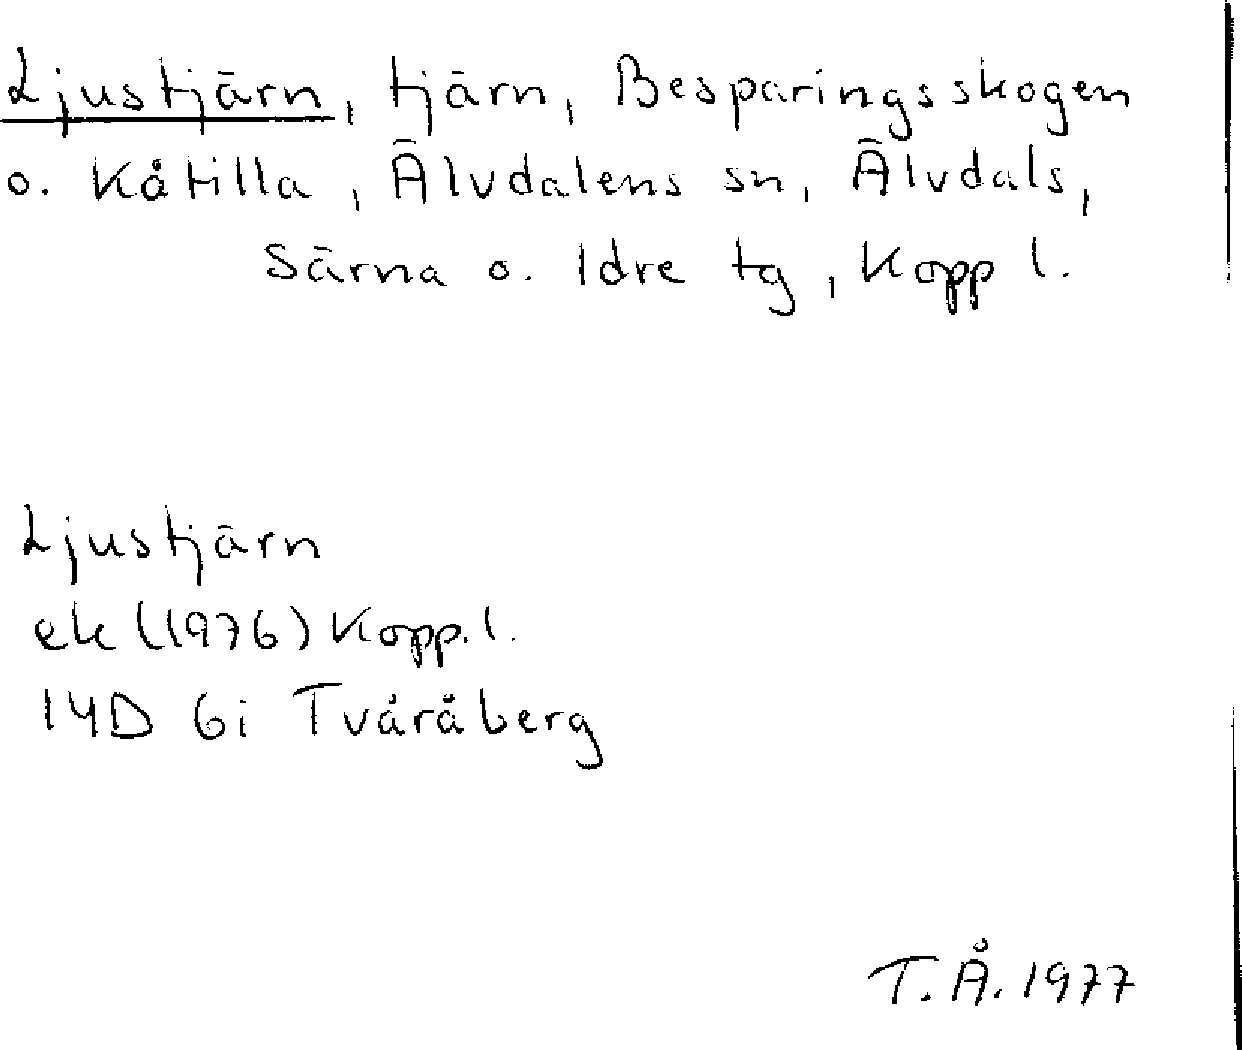 Ljustjärn, tjärn, Besparingsskogen
o. Kåtilla, Älvdalens sn, Älvdals,
Särna o. Idre tg, Kopp l.
Ljustjärn
ek (1976) Kopp. l.
14D 6i Tvåråberg
T.Å. 1977